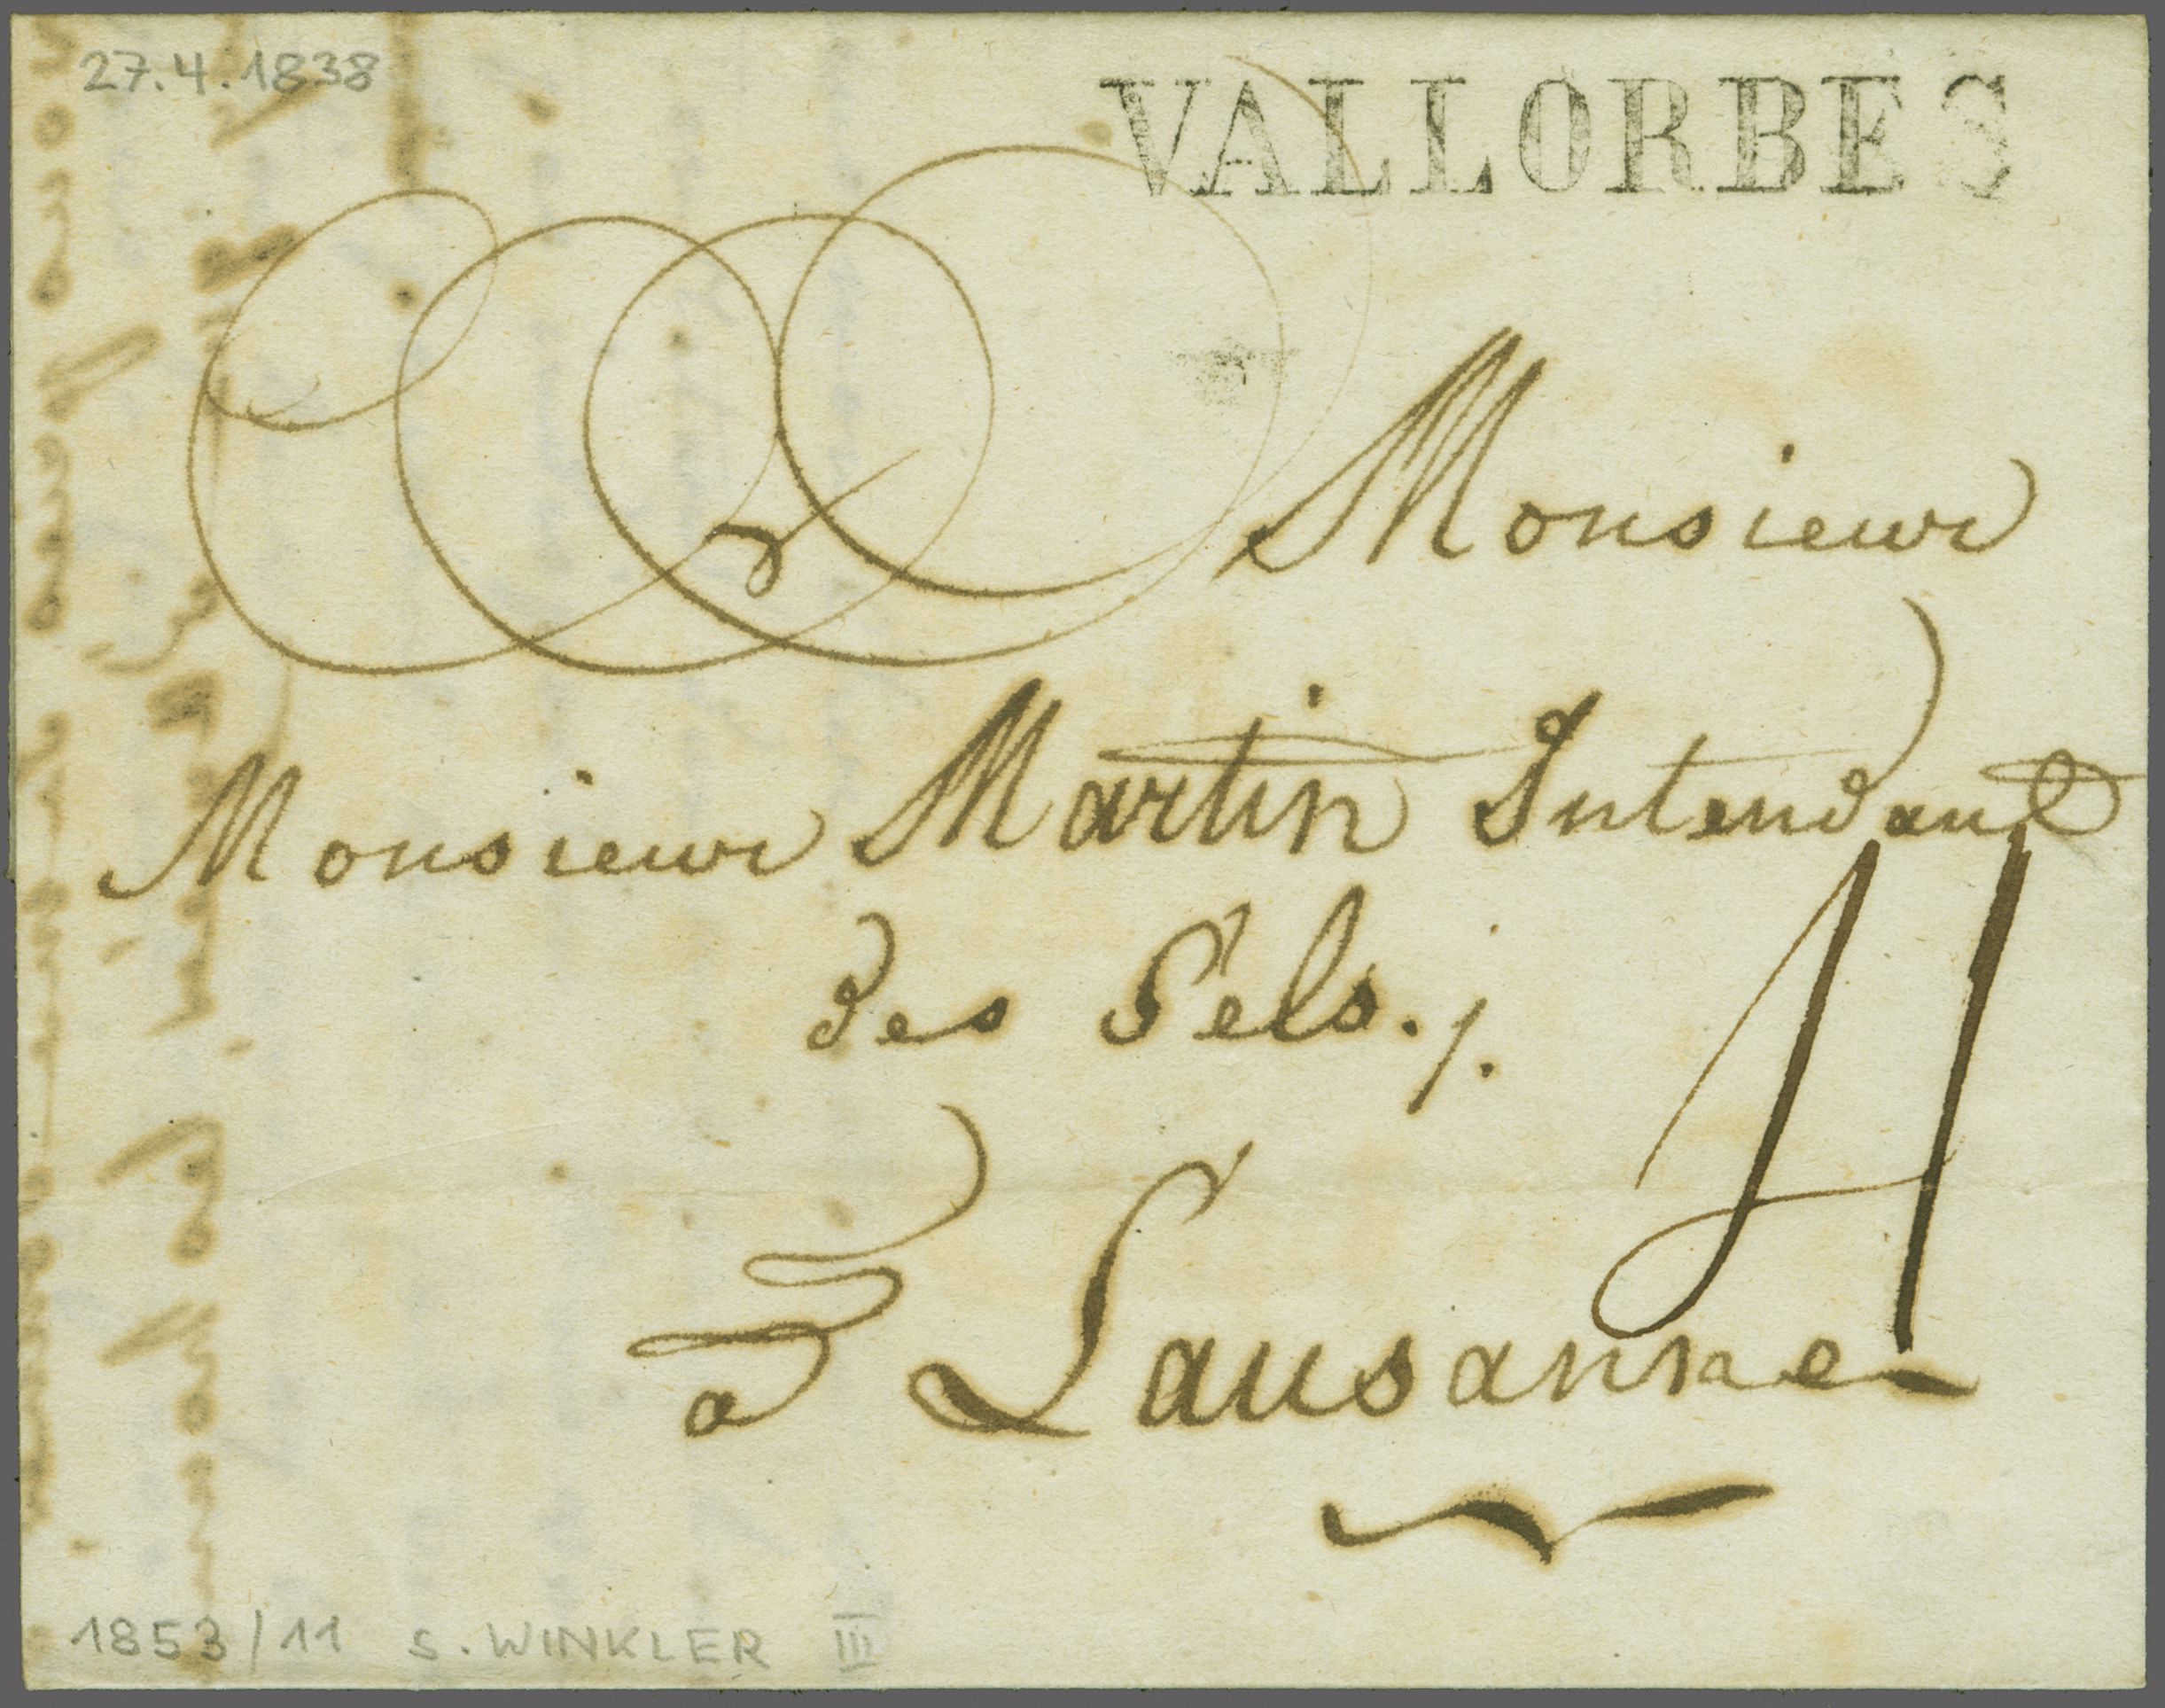 27.4.1838
VALLORBES
Monsieur
Monsieur Martin Intendant
des Sels. /.
à Lausanne
1853/11 S. WINKLER III